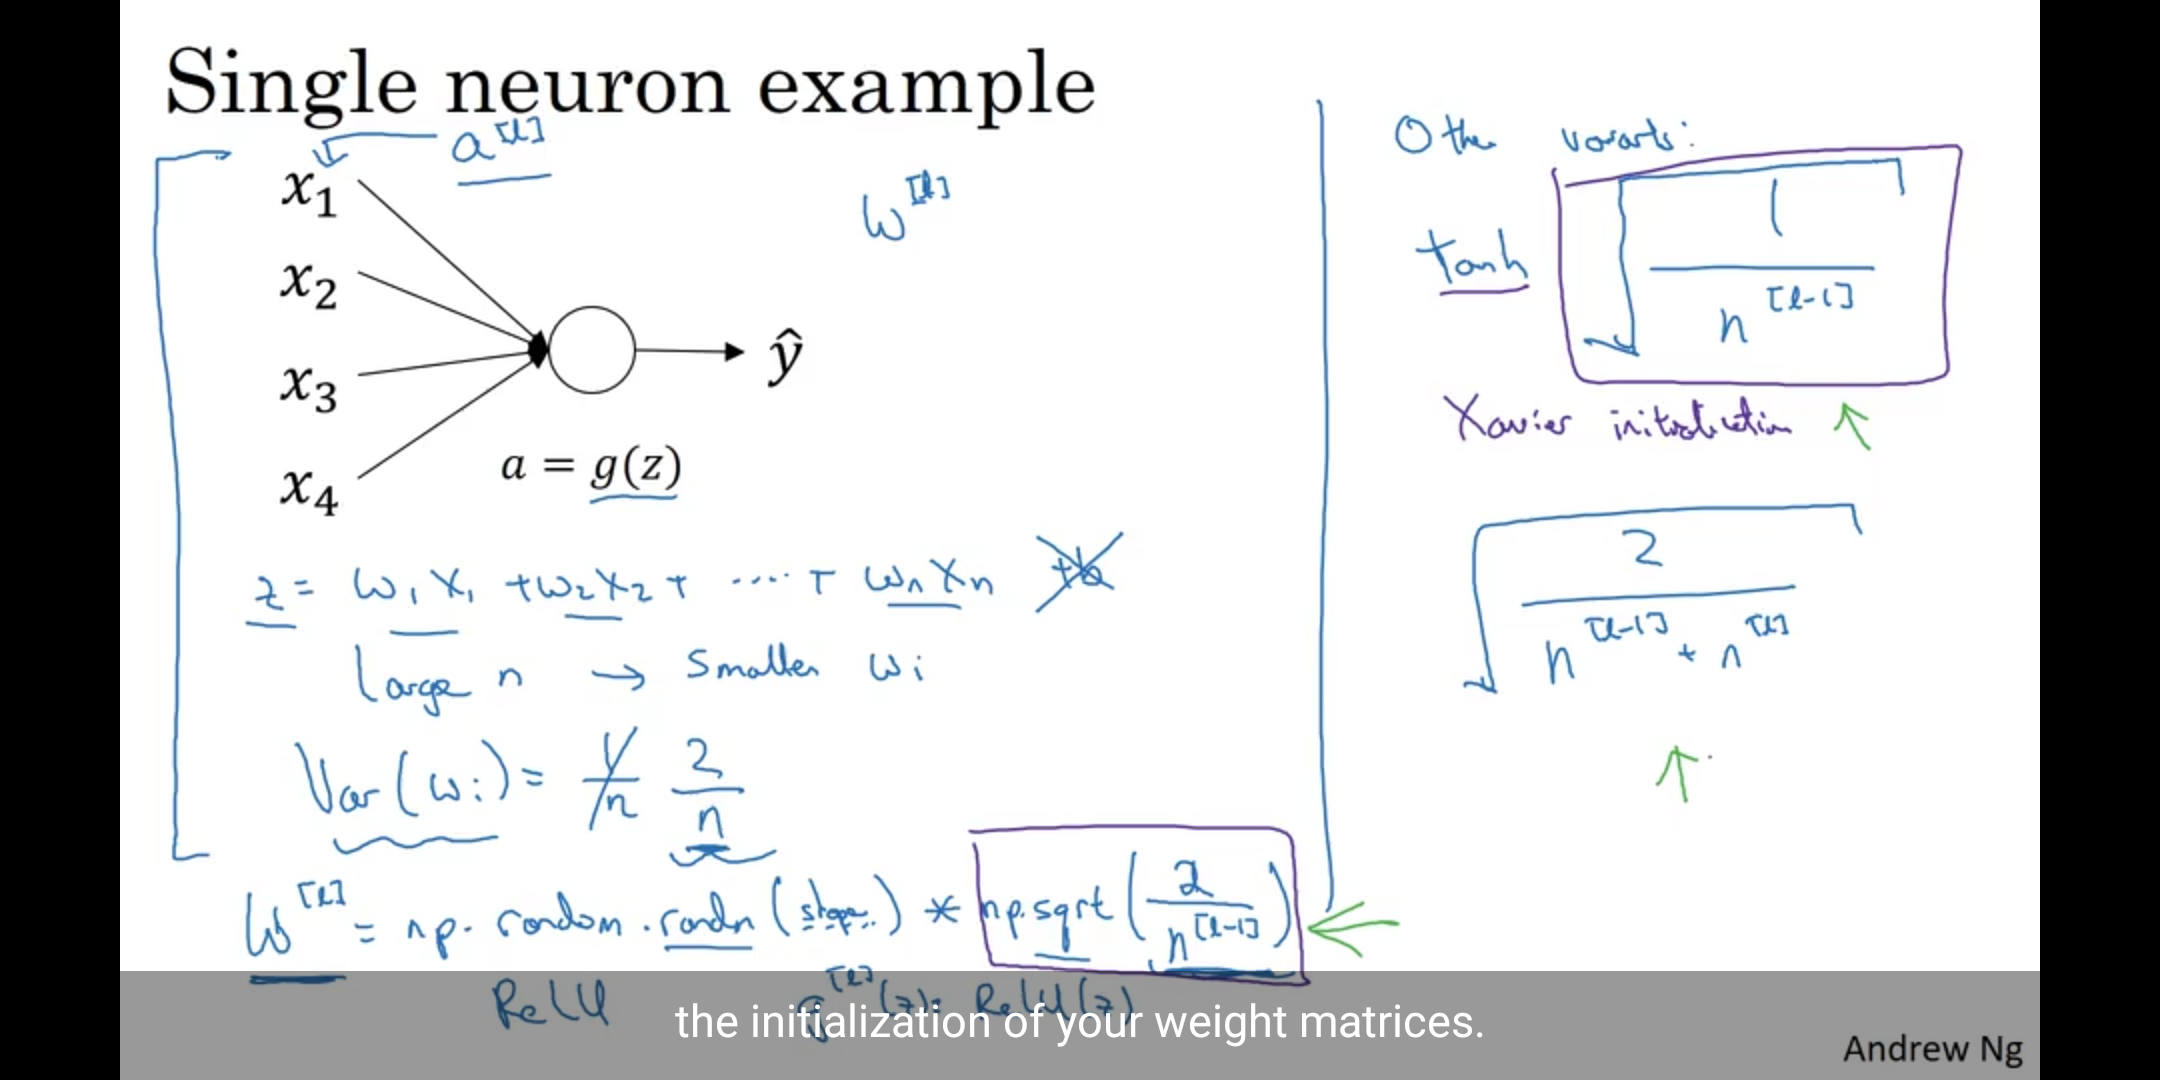 Single neuron example
a^[l]
x₁
W^[l]
x₂
x₃
ŷ
x₄
a = g(z)
z = w₁x₁ + w₂x₂ + .... + wₙxₙ +b
Large n → Smaller wi
Var(wi) = 1/n 2/n
W^[l] = np.random.randn(shape) * np.sqrt(2/n^[l-1])
ReLU g^[l](z) = ReLU(z)
Other variants:
tanh √(1/n^[l-1])
Xavier initialization
√(2/(n^[l-1] + n^[l]))
the initialization of your weight matrices.
Andrew Ng